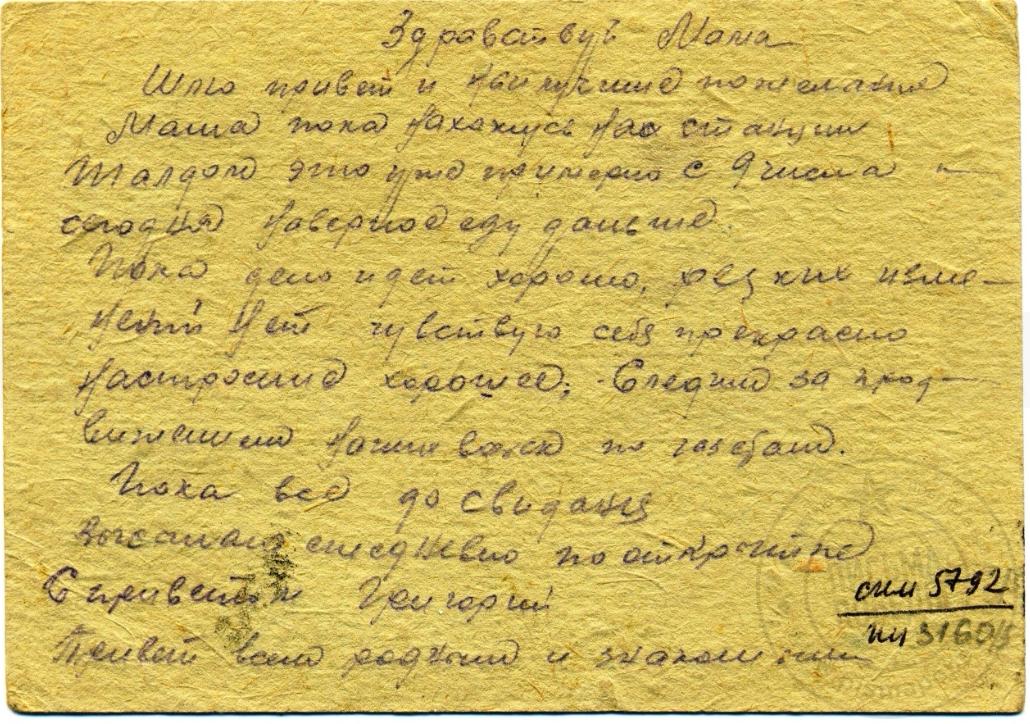 Здравствуй Мама
Шлю привет и наилучшие пожелания
Мама пока нахожусь на станции
Талдом это уже примерно с 9 числа и
сегодня наверное еду дальше.
Пока дело идет хорошо, резких изме-
нений нет чувствую себя прекрасно
настроение хорошее; Следим за прод-
вижением наших войск по газетам.
Пока все до свиданя
Высылаю ежедневно по открытке
С приветом Григорий
Привет всем родным и знакомым
5792